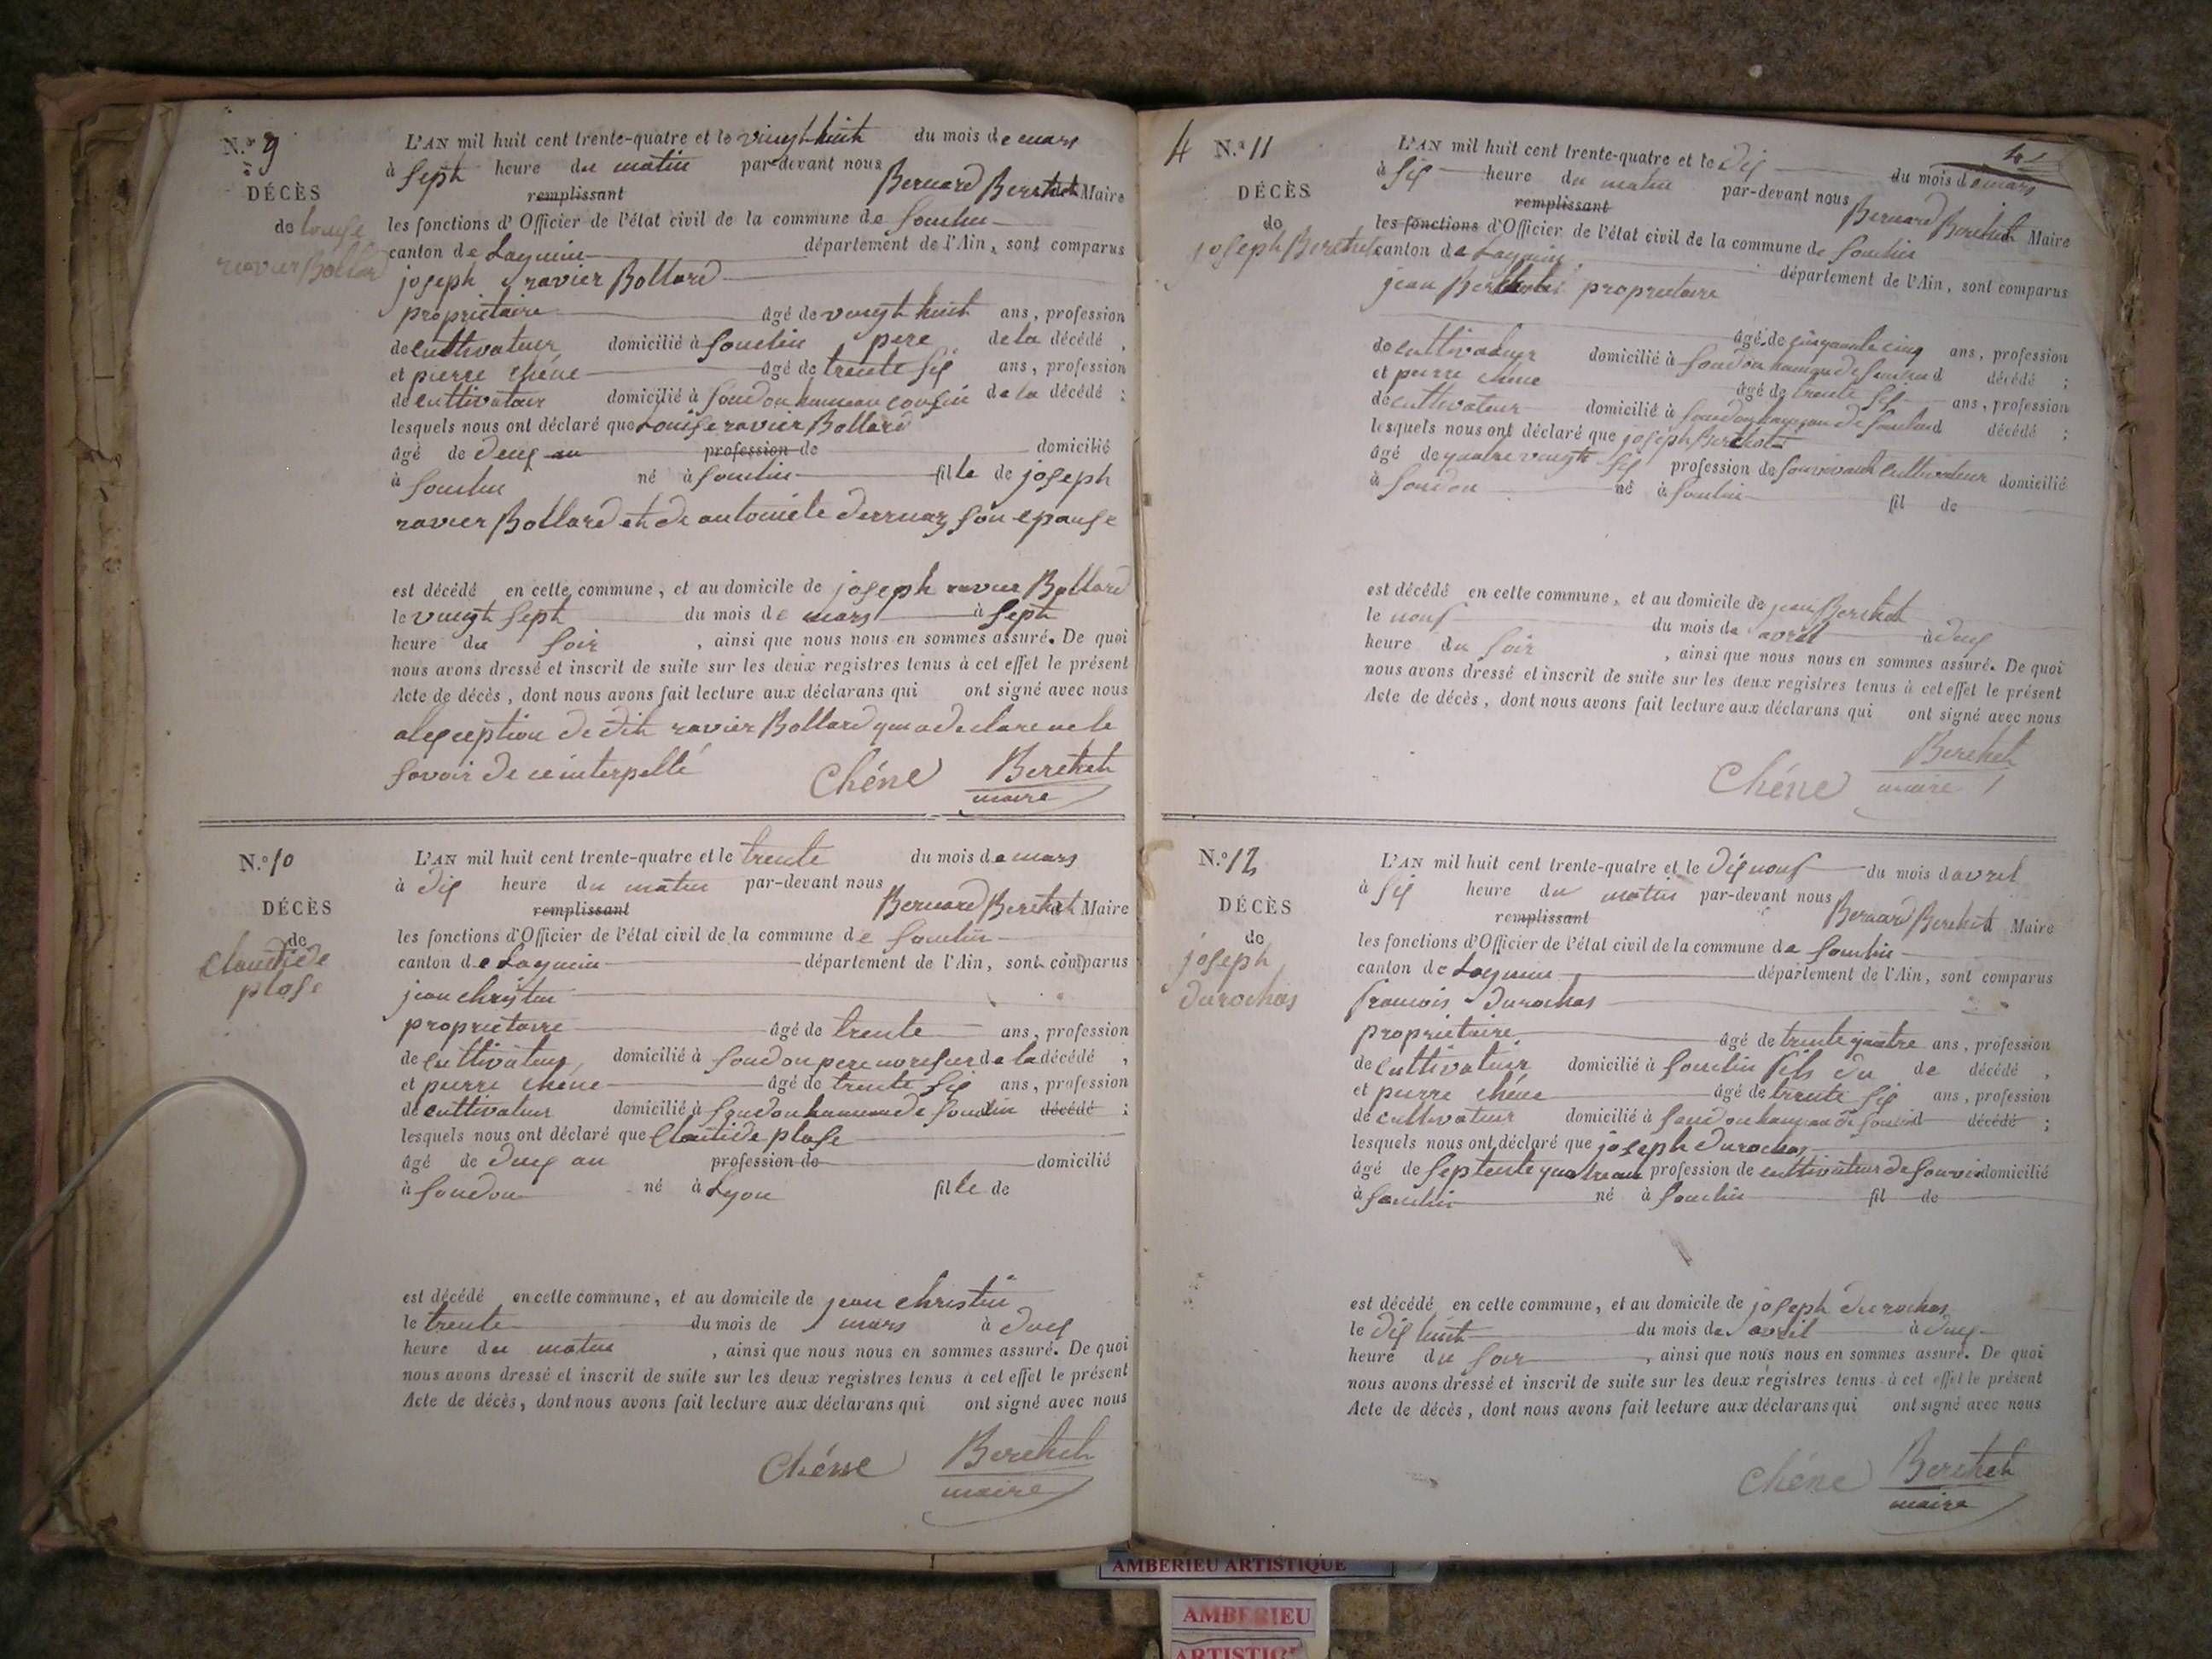 N.° 9
L'AN mil huit cent trente-quatre et le vingt huit du mois de mars
à Sept heure du matin par-devant nous Bernard Berthet Maire
DÉCÈS
remplissant
de Louise
ravier Bollard
les fonctions d'Officier de l'état civil de la commune de Souclin
canton de Lagnieu département de l'Ain, sont comparus
joseph ravier Bollard
propriétaire âgé de vingt huit ans, profession
de cultivateur domicilié à Souclin pere de la décédé,
et pierre chéne âgé de trente Six ans, profession
de cultivateur domicilié à Soudon hameau cousin de la décédé;
lesquels nous ont déclaré que Louise ravier Bollard
âgé de deux an profession de domicilié
à Souclin né à Souclin fille de joseph
ravier Bollard et de antoinete derruaz son epouse
est décédé en cette commune, et au domicile de joseph ravier Bollard
le vingt Sept du mois de mars à Sept
heure du Soir, ainsi que nous nous en sommes assuré. De quoi
nous avons dressé et inscrit de suite sur les deux registres tenus à cet effet le présent
Acte de décès, dont nous avons fait lecture aux déclarans qui ont signé avec nous
alexception de dit ravier Bollard qui a declare ne le
Savoir de ce interpellé
Chéne Berthet
maire
N.° 10
L'AN mil huit cent trente-quatre et le trente du mois de mars
à dix heure du matin par-devant nous Bernard Berthet Maire
DÉCÈS
remplissant
de
Claudide
plase
les fonctions d'Officier de l'état civil de la commune de Souclin
canton de Lagnieu département de l'Ain, sont comparus
jean christin
propriétaire âgé de trente ans, profession
de cultivateur domicilié à Soudon pere de la décédé,
et pierre chéne âgé de trente Six ans, profession
de cultivateur domicilié à Soudon hameau de Souclin décédé;
lesquels nous ont déclaré que Claudide plase
âgé de deux an profession de domicilié
à Soudon né à Lyon fille de
est décédé en cette commune, et au domicile de jean christin
le trente du mois de mars à deux
heure du matin, ainsi que nous nous en sommes assuré. De quoi
nous avons dressé et inscrit de suite sur les deux registres tenus à cet effet le présent
Acte de décès, dont nous avons fait lecture aux déclarans qui ont signé avec nous
Chéne Berthet
maire
4 N.° 11
L'AN mil huit cent trente-quatre et le dix du mois de mars
à Six heure du matin par-devant nous Bernard Berthet Maire
DÉCÈS
remplissant
de
joseph Berthet
les fonctions d'Officier de l'état civil de la commune de Souclin
canton de Lagnieu département de l'Ain, sont comparus
jean Berthet propriétaire
âgé de cinquante cinq ans, profession
de cultivateur domicilié à Soudon hameau de décédé;
et pierre chéne âgé de trente Six ans, profession
de cultivateur domicilié à Soudon hameau de décédé;
lesquels nous ont déclaré que joseph Berthet
âgé de quatre vingt Six profession de Son vivant cultivateur domicilié
à Soudon né à Souclin fil de
est décédé en cette commune, et au domicile de jean Berthet
le neuf du mois de avril à deux
heure du Soir, ainsi que nous nous en sommes assuré. De quoi
nous avons dressé et inscrit de suite sur les deux registres tenus à cet effet le présent
Acte de décès, dont nous avons fait lecture aux déclarans qui ont signé avec nous
Chéne Berthet
maire
N.° 12
L'AN mil huit cent trente-quatre et le dix neuf du mois d avril
à Six heure du matin par-devant nous Bernard Berthet Maire
DÉCÈS
remplissant
de
joseph
durochas
les fonctions d'Officier de l'état civil de la commune de Souclin
canton de Lagnieu département de l'Ain, sont comparus
francois durochas
propriétaire âgé de trente quatre ans, profession
de cultivateur domicilié à Souclin fils du de décédé,
et pierre chéne âgé de trente Six ans, profession
de cultivateur domicilié à Soudon hameau de décédé;
lesquels nous ont déclaré que joseph durochas
âgé de Septente quatre ans profession de cultivateur de domicilié
à Souclin né à Souclin fil de
est décédé en cette commune, et au domicile de joseph durochas
le dix huit du mois de avril à deux
heure du Soir, ainsi que nous nous en sommes assuré. De quoi
nous avons dressé et inscrit de suite sur les deux registres tenus à cet effet le présent
Acte de décès, dont nous avons fait lecture aux déclarans qui ont signé avec nous
Chéne Berthet
maire
AMBERIEU ARTISTIQUE
AMBERIEU
ARTISTIQUE